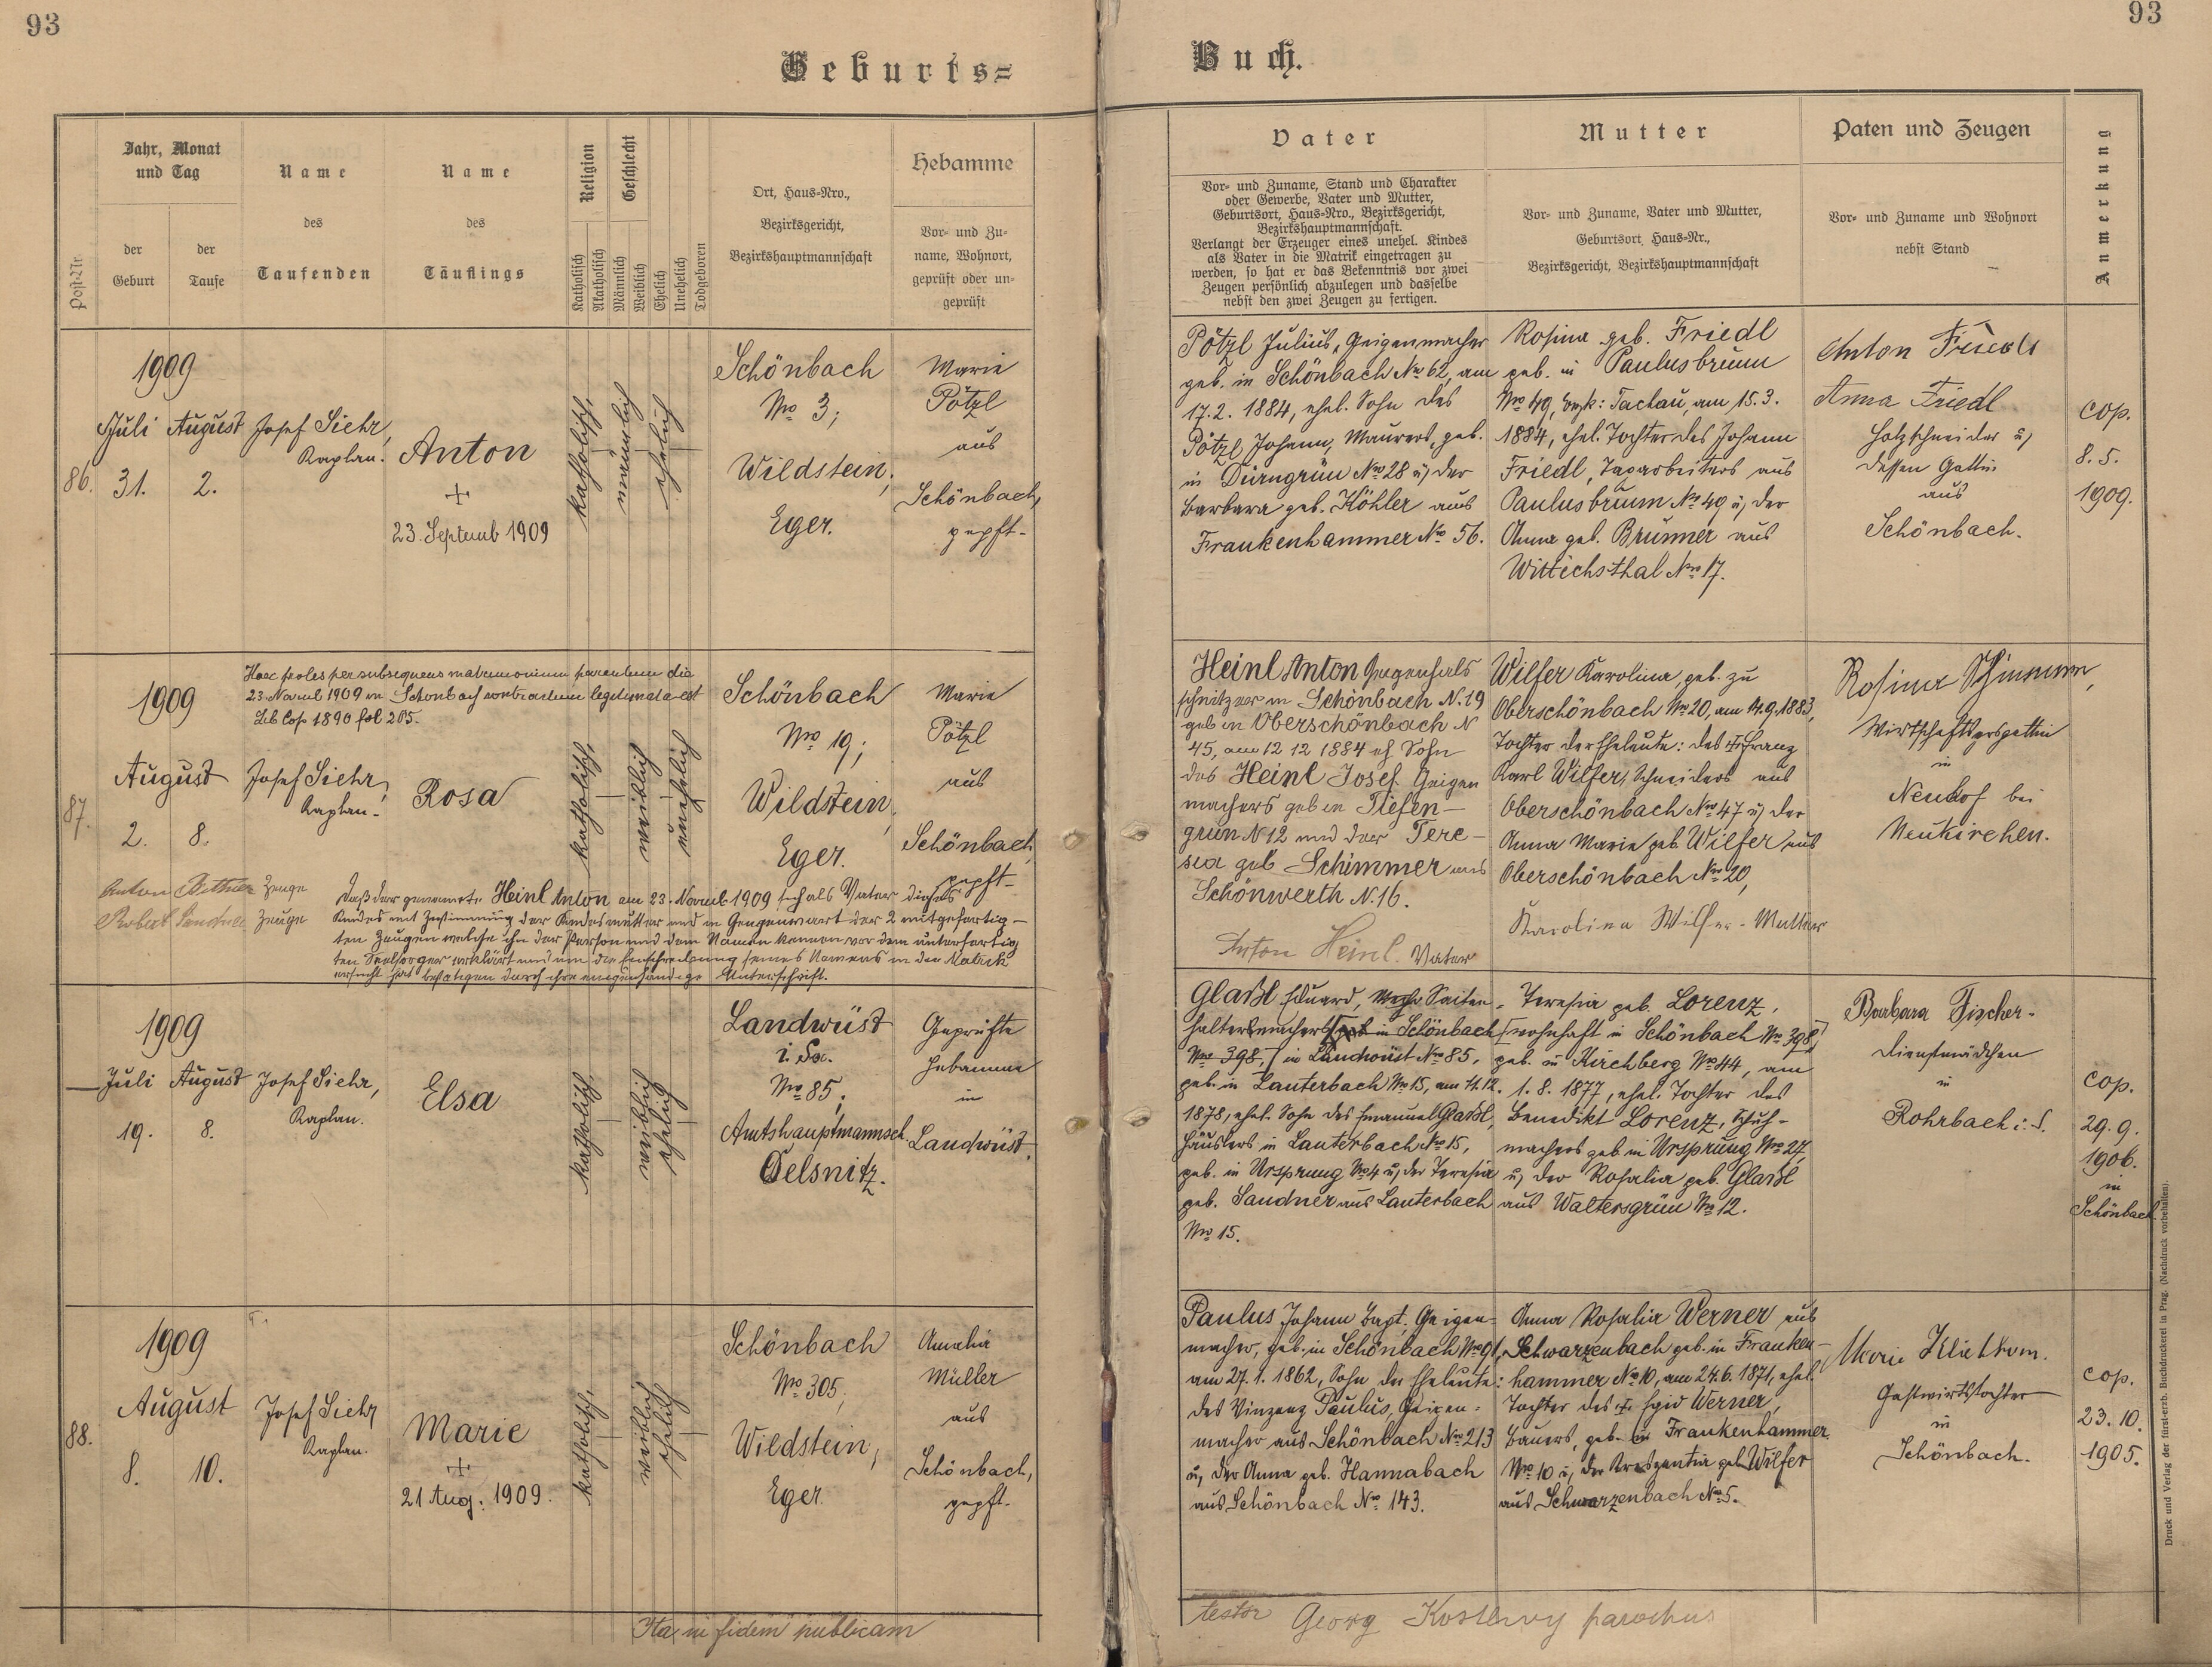 93
93
Geburts=
Buch.
Jahr, Monat
und Tag
der
Geburt
der
Taufe
Post-Nr.
Name
des
Taufenden
Name
des
Täuflings
Religion
Geschlecht
Katholisch
Akatholisch
Männlich
Weiblich
Ehelich
Unehelich
Todgeboren
Ort, Haus-Nro.,
Bezirksgericht,
Bezirkshauptmannschaft
Hebamme
Vor- und Zu-
name, Wohnort,
geprüft oder un-
geprüft
Vater
Vor- und Zuname, Stand und Charakter
oder Gewerbe, Vater und Mutter,
Geburtsort, Haus-Nro., Bezirksgericht,
Bezirkshauptmannschaft.
Verlangt der Erzeuger eines unehel. Kindes
als Vater in die Matrik eingetragen zu
werden, so hat er das Bekenntnis vor zwei
Zeugen persönlich abzulegen und dasselbe
nebst den zwei Zeugen zu fertigen.
Mutter
Vor- und Zuname, Vater und Mutter,
Geburtsort, Haus-Nr.,
Bezirksgericht, Bezirkshauptmannschaft
Paten und Zeugen
Vor- und Zuname und Wohnort
nebst Stand
Anmerkung
86.
1909
Juli August
31. 2.
Josef Siehr,
Kaplan.
Anton
+
23. Septemb 1909
katholisch,
männlich
ehelich
Schönbach
Nro 3;
Wildstein,
Eger.
Marie
Pötzl
aus
Schönbach,
gepft.
Pötzl Julius, Geigenmacher
geb. in Schönbach Nro 62, am
17.2. 1884, ehel. Sohn des
Pötzl Johann, Maurers, geb.
in Dürngrün Nro 28 u, der
Barbara geb. Köhler aus
Frankenhammer Nro 56.
Rosina geb. Friedl
geb. in Paulusbrunn
Nro 49, Bzk: Tachau, am 15.3.
1884, ehel. Tochter des Johann
Friedl, Tagarbeiters aus
Paulusbrunn Nro 49 u, der
Anna geb. Brunner aus
Wittichsthal Nro 17.
Anton Friedl
Anna Friedl
Holzschneider u,
dessen Gattin
aus
Schönbach.
cop.
8. 5.
1909.
87.
1909
August
2. 8.
Haec proles per subsequens matrimonium parentum die
23 Novemb 1909 in Schönbach contractum legitimata est
Lib Cop 1890 fol 205.
Josef Siehr,
Kaplan.
Rosa
katholisch,
weiblich
unehelich
Schönbach
Nro 19;
Wildstein,
Eger.
Marie
Pötzl
aus
Schönbach
gepft.
Zeuge
Robert Sandner Zeuge
Daß der genannte Heinl Anton am 23. Novemb 1909 sich als Vater dieses
Kindes mit Zustimmung der Kindesmutter und in Gegenwart der 2 mitgefertig-
ten Zeugen welche ihn der Person und dem Namen kennen vor dem unterfertig
ten Seelsorger erklärt und um die Einschreibung seines Namens in die Matrik
ersucht hat bestätigen durch ihre eigenhändige Unterschrift.
Heinl Anton Geigenhals
schnitzer in Schönbach N. 19
geb in Oberschönbach N
45, am 12 12 1884 eh Sohn
des Heinl Josef Geigen
machers geb in Tiefen-
grün N 12 und der Tere-
sia geb Schimmer aus
Schönwerth N. 16.
Anton Heinl. Vater
Wilfer Karolina, geb. zu
Oberschönbach Nro 20, am 14.9.1883,
Tochter der Eheleute: des + Franz
Karl Wilfer, Schneiders aus
Oberschönbach Nro 47 u, der
Anna Marie geb. Wilfer aus
Oberschönbach Nro 20,
Karolina Wilfer - Mutter
Rosina Schimmer,
Wirtschaftersgattin
in
Neuhof bei
Neukirchen.
1909
Juli August
19. 8.
Josef Siehr,
Kaplan.
Elsa
katholisch,
weiblich
ehelich
Landwüst
i. Sa.
Nro 85;
Amtshauptmannsch.
Oelsnitz.
Geprüfte
Hebamme
in
Landwüst.
Glaßl Eduard, Saiten-
haltermachers in Schönbach
Nro 398 in Landwüst Nro 85,
geb. in Lauterbach Nro 15, am 11.12.
1878, ehel. Sohn des Emanuel Glaßl,
Häuslers in Lauterbach Nro 15,
geb. in Ursprung Nro 4 u, der Teresia
geb. Sandner aus Lauterbach
Nro 15.
Teresia geb. Lorenz,
[wohnhaft in Schönbach Nro 398]
geb. in Kirchberg Nro 44, am
1. 8. 1877, ehel. Tochter des
Benedikt Lorenz, Schuh-
machers geb in Ursprung Nro 27,
u, der Rosalia geb. Glaßl
aus Waltersgrün Nro 12.
Barbara Fischer-
Dienstmädchen
in
Rohrbach i. S.
cop.
29. 9.
1906.
in
Schönbach
88.
1909
August
8. 10.
Josef Siehr
Kaplan.
Marie
+
21 Aug. 1909.
katholisch,
weiblich
ehelich
Schönbach
Nro 305,
Wildstein,
Eger.
Amalia
Müller
aus
Schönbach,
gepft.
Paulus Johann Bapt. Geigen-
macher, geb. in Schönbach Nro 91,
am 27.1. 1862, Sohn der Eheleute:
des Vinzenz Paulus, Geigen-
macher aus Schönbach Nro 213
u, der Anna geb. Hannabach
aus Schönbach Nro 143.
Anna Rosalia Werner aus
Schwarzenbach geb. in Franken-
hammer Nro 10, am 24.6. 1871, ehel.
Tochter des + Egid Werner,
Bauers, geb. in Frankenhammer
Nro 10 u, der Kreszentia geb. Wilfer
aus Schwarzenbach Nro 5.
Marie
Gastwirtstochter
in
Schönbach.
cop.
23. 10.
1905.
Ita in fidem publicam
testor Georg parochus
Druck und Verlag der fürst-erzb. Buchdruckerei in Prag. (Nachdruck vorbehalten).